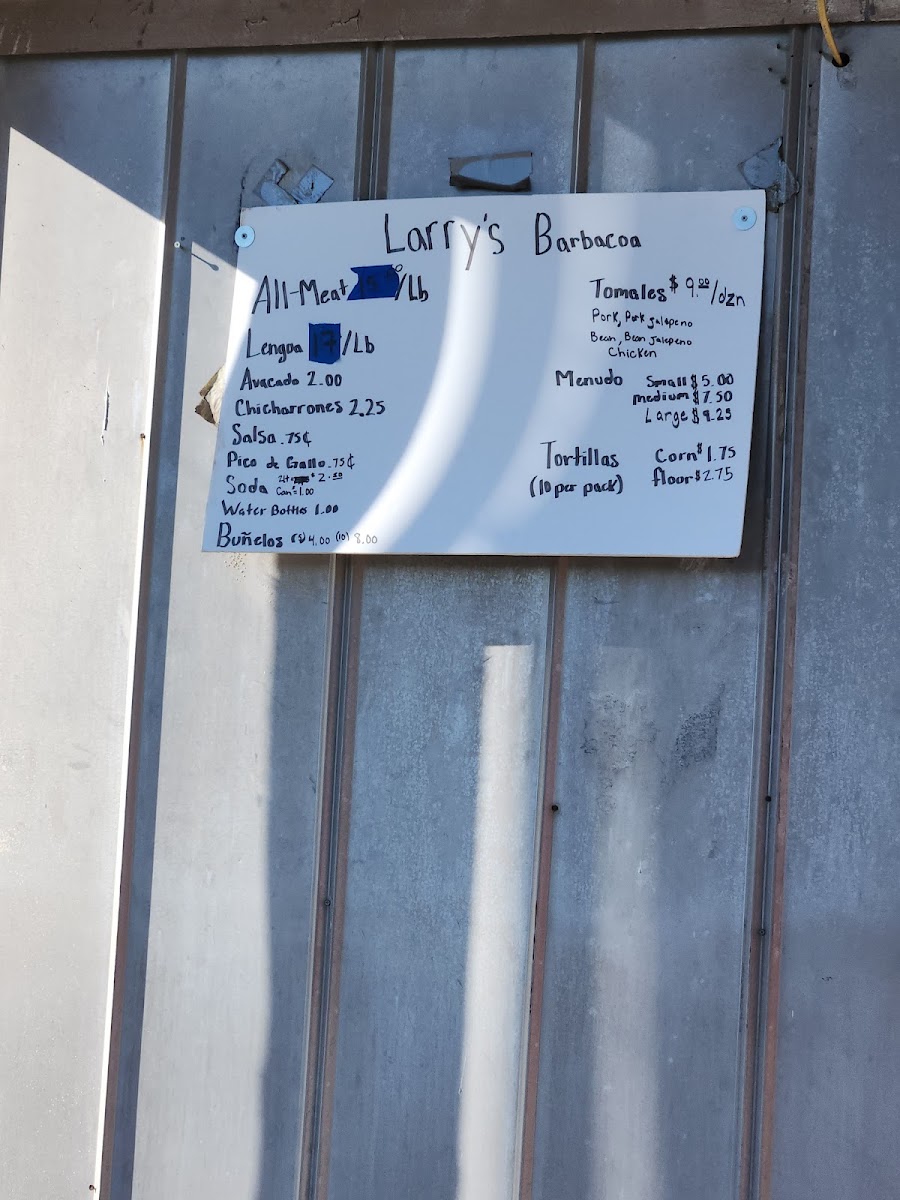 Larry's Barbacoa
All-Meat /Lb
Lengua 17/Lb
Avacado 2.00
Chicharrones 2.25
Salsa .75¢
Pico de Gallo .75¢
Soda $2.50
Can $1.00
Water Bottles 1.00
Buñelos (5) 4.00 (10) 8.00
Tamales $9.00/dzn
Pork, Pork jalapeno
Bean, Bean jalapeno
Chicken
Menudo Small $5.00
medium $7.50
Large $9.25
Tortillas Corn $1.75
(10 per pack) flour $2.75